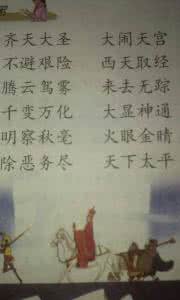 齐天大圣 大闹天宫
不避艰险 西天取经
腾云驾雾 来去无踪
千变万化 大显神通
明察秋毫 火眼金睛
除恶务尽 天下太平